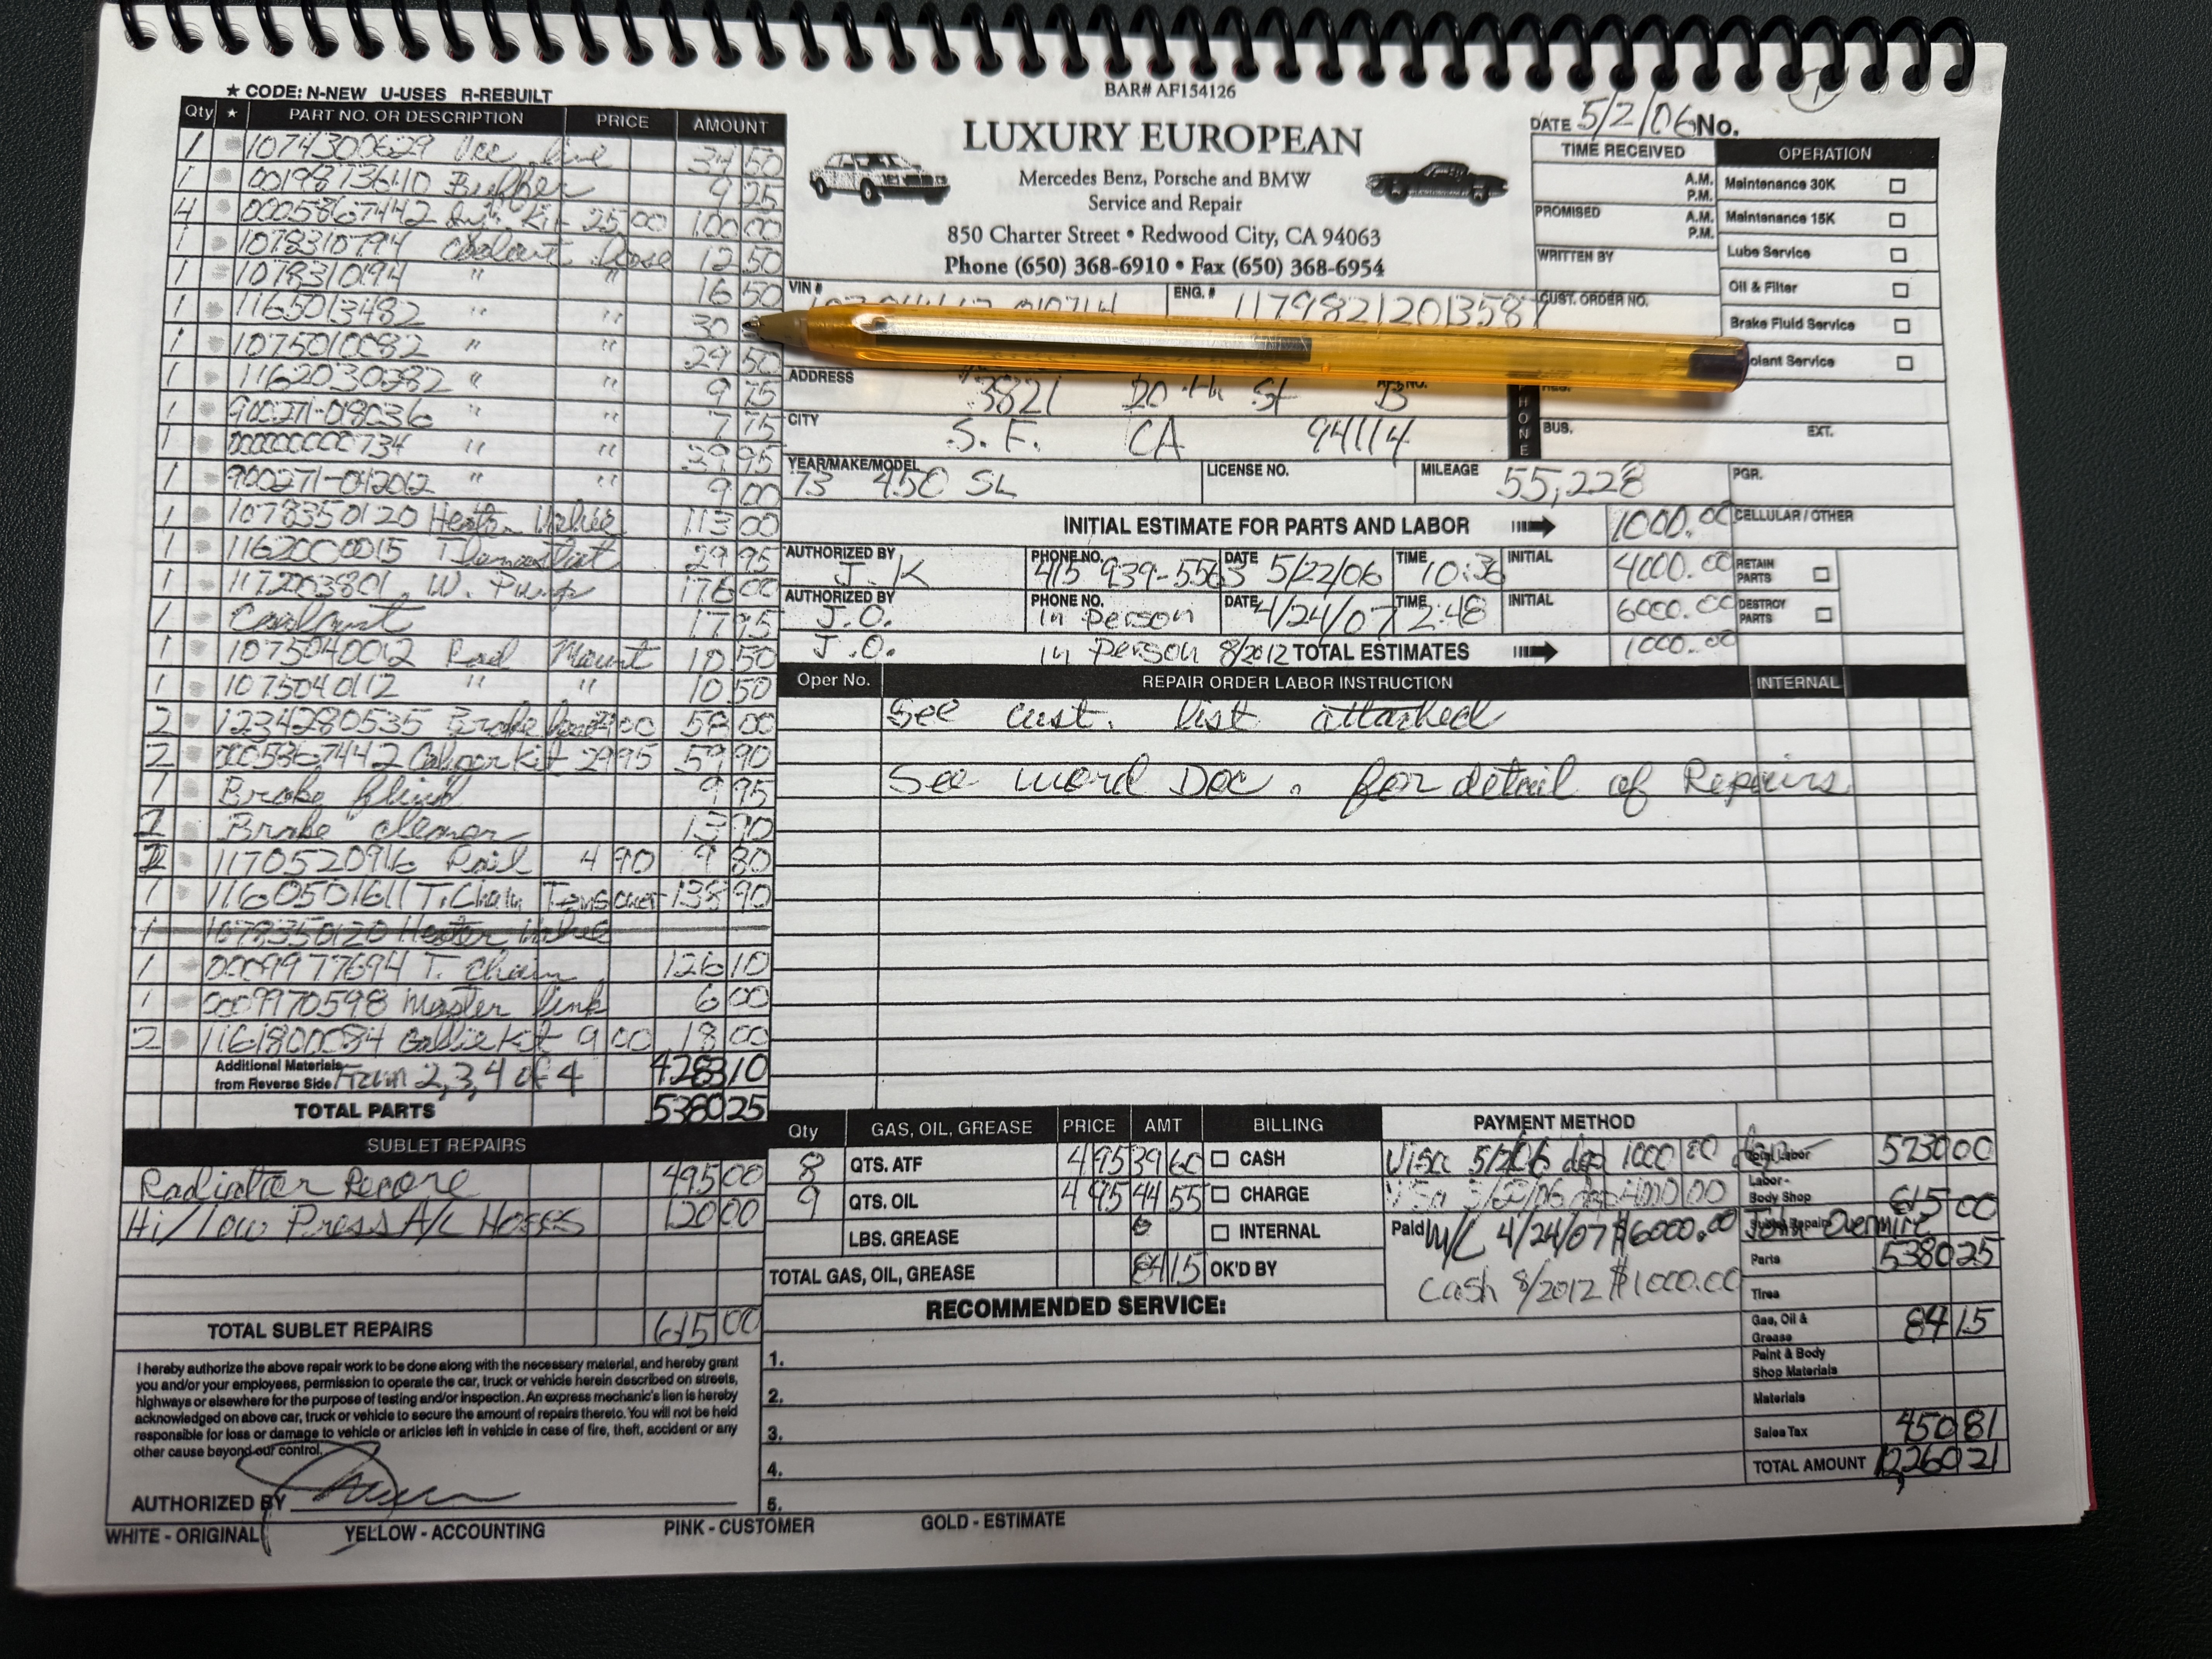 ★ CODE: N-NEW U-USES R-REBUILT
Qty ★ PART NO. OR DESCRIPTION PRICE AMOUNT
1 1074300629 Vac line 34 50
1 0019873640 Buffer 9 25
4 0005867442 Kit 25 00 100 00
1 1078310794 Coolant Hose 12 50
1 1078310194 " " 16 50
1 1165013482 " " 30
1 1075010082 " " 29 50
1 1162030382 " " 9 75
1 900271-018036 " " 7 75
1 000000000734 " " 39 95
1 900271-042012 " " 9 00
1 1078350120 Heater Valve 113 00
1 1162000015 Thermostat 29 95
1 1172003801 W. Pump 176 00
1 Coolant 17 95
1 1075040012 Rad Mount 10 50
1 1075040112 " " 10 50
2 1234280535 Brake 00 58 00
2 0005867442 Caliper Kit 29 95 59 90
1 Brake fluid 9 95
2 Brake cleaner 13 90
2 1170520916 Rail 4 90 9 80
1 1160501611 T. Chain Tensioner 138 90
1 1078350120 Heater Valve
1 0009977694 T. Chain 126 10
1 0009970598 Master link 6 00
2 1161800084 Kit 9 00 18 00
Additional Materials from Reverse Side From 2,3,4 of 4 4283 10
TOTAL PARTS 5380 25
SUBLET REPAIRS
Radiator Recore 495 00
Hi/Low Press A/C Hoses 120 00
TOTAL SUBLET REPAIRS 615 00
I hereby authorize the above repair work to be done along with the necessary material, and hereby grant
you and/or your employees, permission to operate the car, truck or vehicle herein described on streets,
highways or elsewhere for the purpose of testing and/or inspection. An express mechanic's lien is hereby
acknowledged on above car, truck or vehicle to secure the amount of repairs thereto. You will not be held
responsible for loss or damage to vehicle or articles left in vehicle in case of fire, theft, accident or any
other cause beyond our control.
AUTHORIZED BY
BAR# AF154126
LUXURY EUROPEAN
Mercedes Benz, Porsche and BMW
Service and Repair
850 Charter Street • Redwood City, CA 94063
Phone (650) 368-6910 • Fax (650) 368-6954
DATE 5/2/06 No. 1
TIME RECEIVED
A.M.
P.M.
PROMISED A.M.
P.M.
WRITTEN BY
CUST. ORDER NO.
OPERATION
Maintenance 30K
Maintenance 15K
Lube Service
Oil & Filter
Brake Fluid Service
olant Service
VIN # ENG. # 11798212013587
ADDRESS 3821 20th St B
CITY S.F. CA 94114
HONE
BUS. EXT.
YEAR/MAKE/MODEL 73 450 SL
LICENSE NO.
MILEAGE 55,228
PGR.
INITIAL ESTIMATE FOR PARTS AND LABOR 1000.00
CELLULAR / OTHER
AUTHORIZED BY J.K PHONE NO. 415 939-5563 DATE 5/22/06 TIME 10:36 INITIAL 4000.00
RETAIN PARTS
AUTHORIZED BY J.O. PHONE NO. In Person DATE 4/24/07 TIME 2:48 INITIAL 6000.00
DESTROY PARTS
J.O. in Person 8/2012 TOTAL ESTIMATES 1000.00
Oper No. REPAIR ORDER LABOR INSTRUCTION INTERNAL
See cust. list attached
See word Doc. for detail of Repairs
Qty GAS, OIL, GREASE PRICE AMT
8 QTS. ATF 4 95 39 60
9 QTS. OIL 4 95 44 55
LBS. GREASE
TOTAL GAS, OIL, GREASE 84 15
BILLING
CASH
CHARGE
INTERNAL
OK'D BY
PAYMENT METHOD
Visa 5/2/06 dep 1000 00
Visa 5/22/06 dep 4000 00
Paid M/C 4/24/07 $6000.00 John Overmire
Cash 8/2012 $1000.00
Total Labor 5730 00
Labor - Body Shop
Sublet Repairs 615 00
Parts 5380 25
Tires
Gas, Oil & Grease 84 15
Paint & Body Shop Materials
Materials
Sales Tax 450 81
TOTAL AMOUNT 12,260 21
RECOMMENDED SERVICE:
1.
2.
3.
4.
5.
WHITE - ORIGINAL YELLOW - ACCOUNTING PINK - CUSTOMER GOLD - ESTIMATE